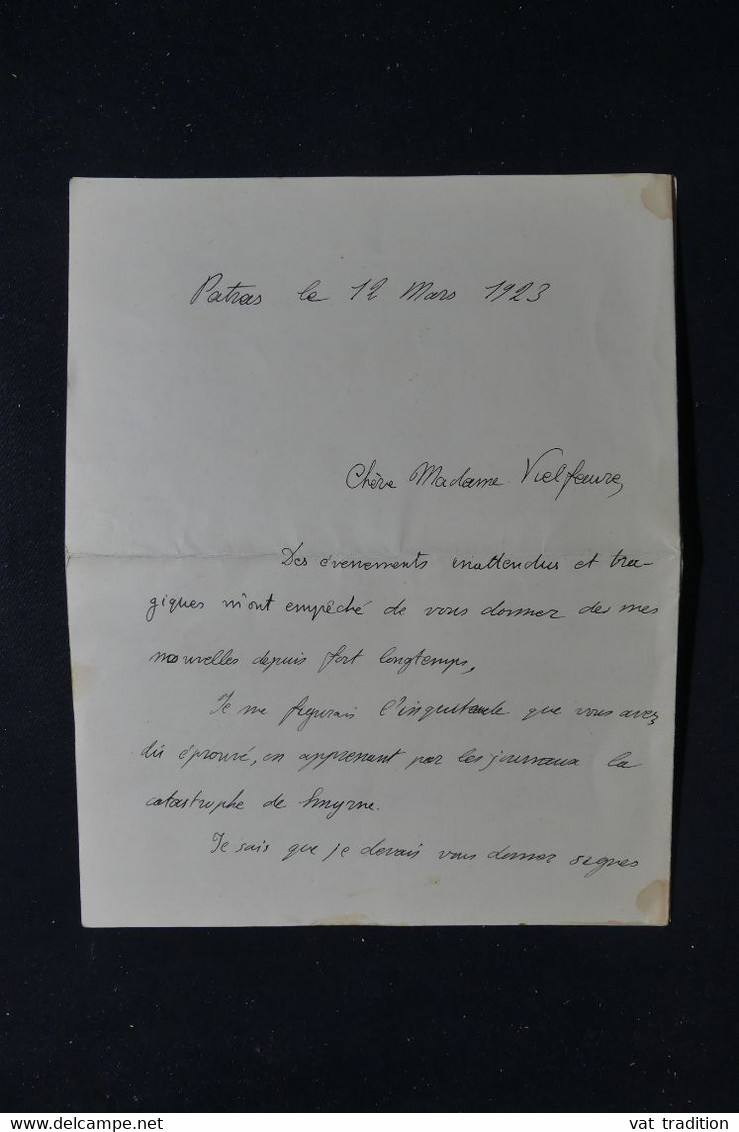 Patras le 12 Mars 1923
Chère Madame Vielfaure,
Des évenements inattendus et tra-
giques m'ont empêché de vous donner de mes
nouvelles depuis fort longtemps,
Je me figurais l'inquietude que vous avez
dû éprouvé, en apprenant par les journaux la
catastrophe de Smyrne.
Je sais que je devais vous donner signes
www.delcampe.net
vat tradition